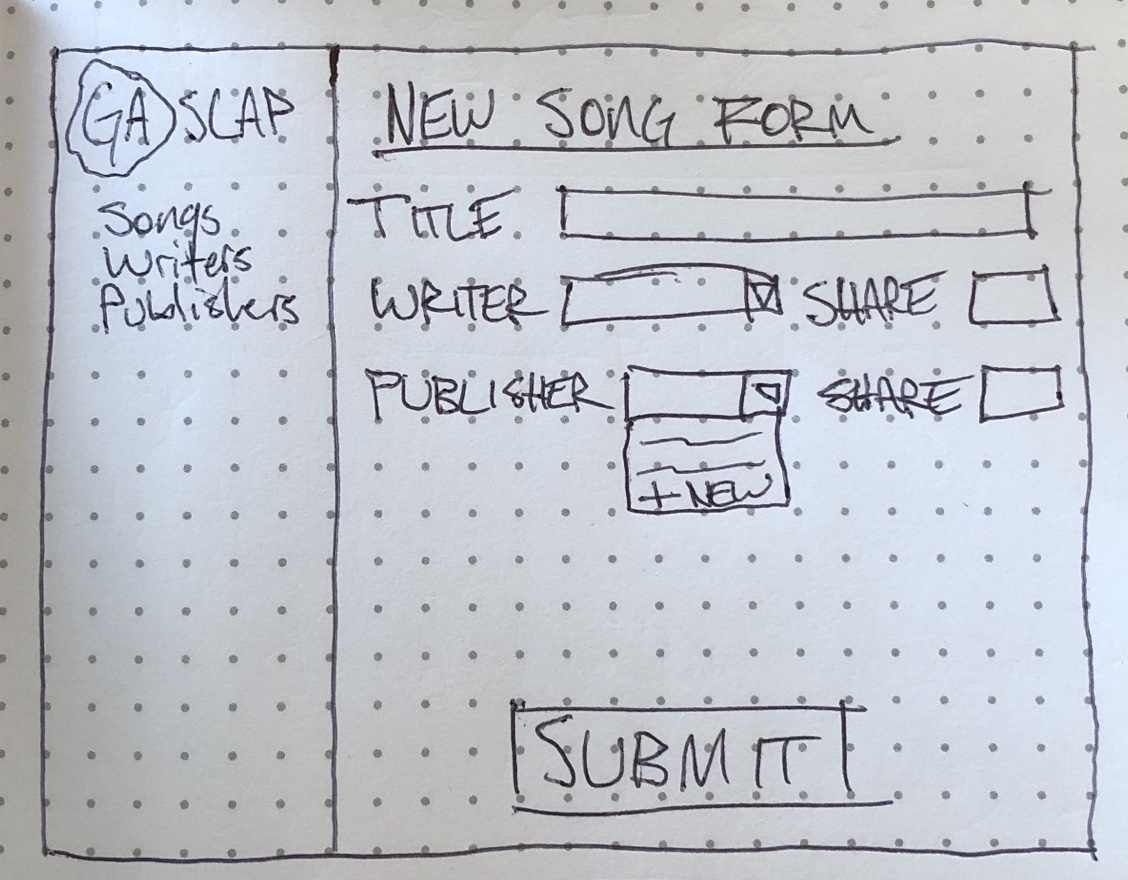 GASCAP
Songs
Writers
Publishers
NEW SONG FORM
TITLE
WRITER SHARE
PUBLISHER SHARE
+ NEW
SUBMIT